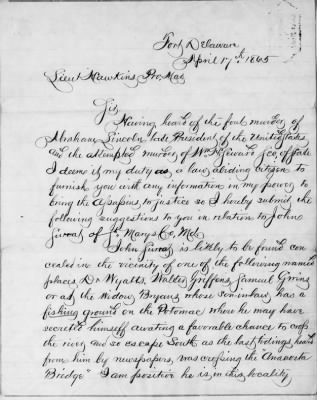 Fort Delaware
April 17th 1865
Lieut Hawkins Pro. Mar
Sir
Having heard of the foul murder of
Abraham Lincoln late President of the United States
and the attempted murder of Wm H Seward Sec. of State
I deem it my duty as a law abiding citizen to
furnish you with any information in my power to
bring the assassins to justice so I hereby submit the
following suggestions to you in relation to John
Surrat of St Marys Co, Md.
John Surrat is likely to be found con
cealed in the vicinity of one of the following named
places, Dr Wyatts, Walter Griffens, Samuel
or at the Widow Bryans whose son has a
fishing ground on the Potomac where he may have
secreted himself awaiting a favorable chance to cross
the river and so escape South as the last tidings, heard
from him by newspapers, was crossing the Anacosta
Bridge" I am positive he is in this locality